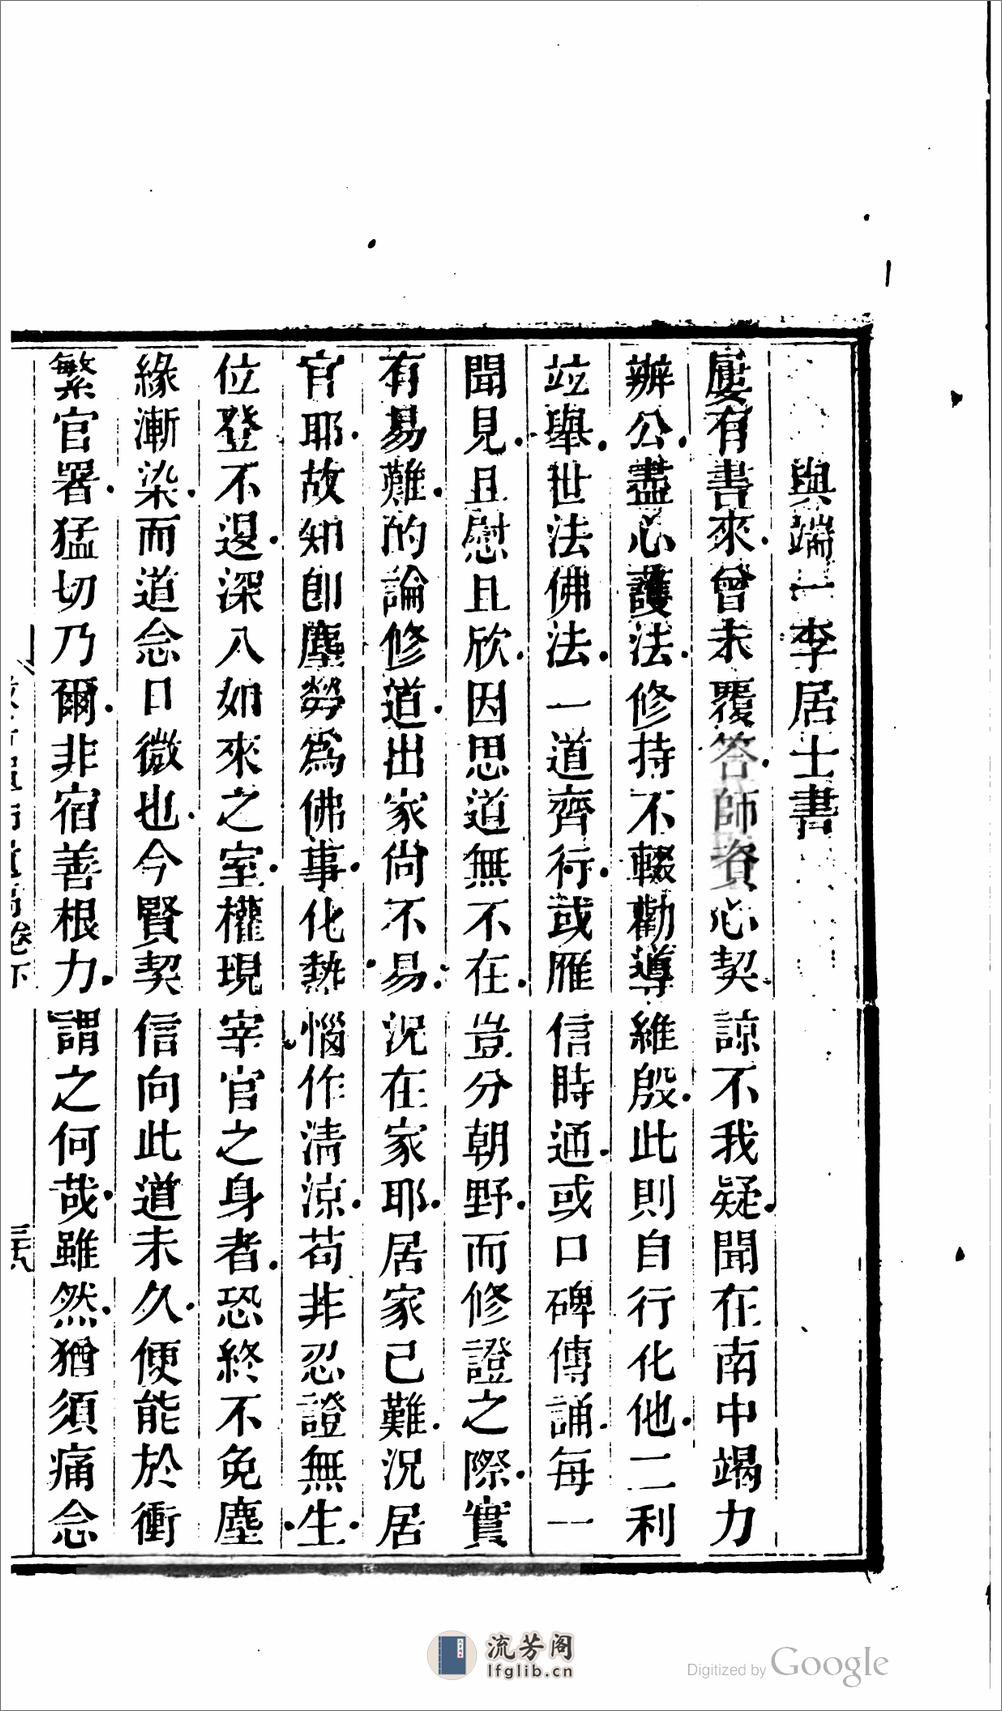 與端一李居士書
屢有書來曾未覆答師資心契諒不我疑聞在南中竭力
辦公盡心護法修持不輟勸導維殷此則自行化他二利
竝舉世法佛法一道齊行或雁信時通或口碑傳誦每一
聞見且慰且欣因思道無不在豈分朝野而修證之際實
有易難的論修道出家尙不易況在家耶居家已難況居
官耶故知卽塵勞爲佛事化熱惱作淸涼苟非忍證無生
位登不退深入如來之室權現宰官之身者恐終不免塵
緣漸染而道念日微也今賢契信向此道未久便能於衝
繁官署猛切乃爾非宿善根力謂之何哉雖然猶須痛念
卷下
流芳阁
lfglib.cn
Digitized by Google